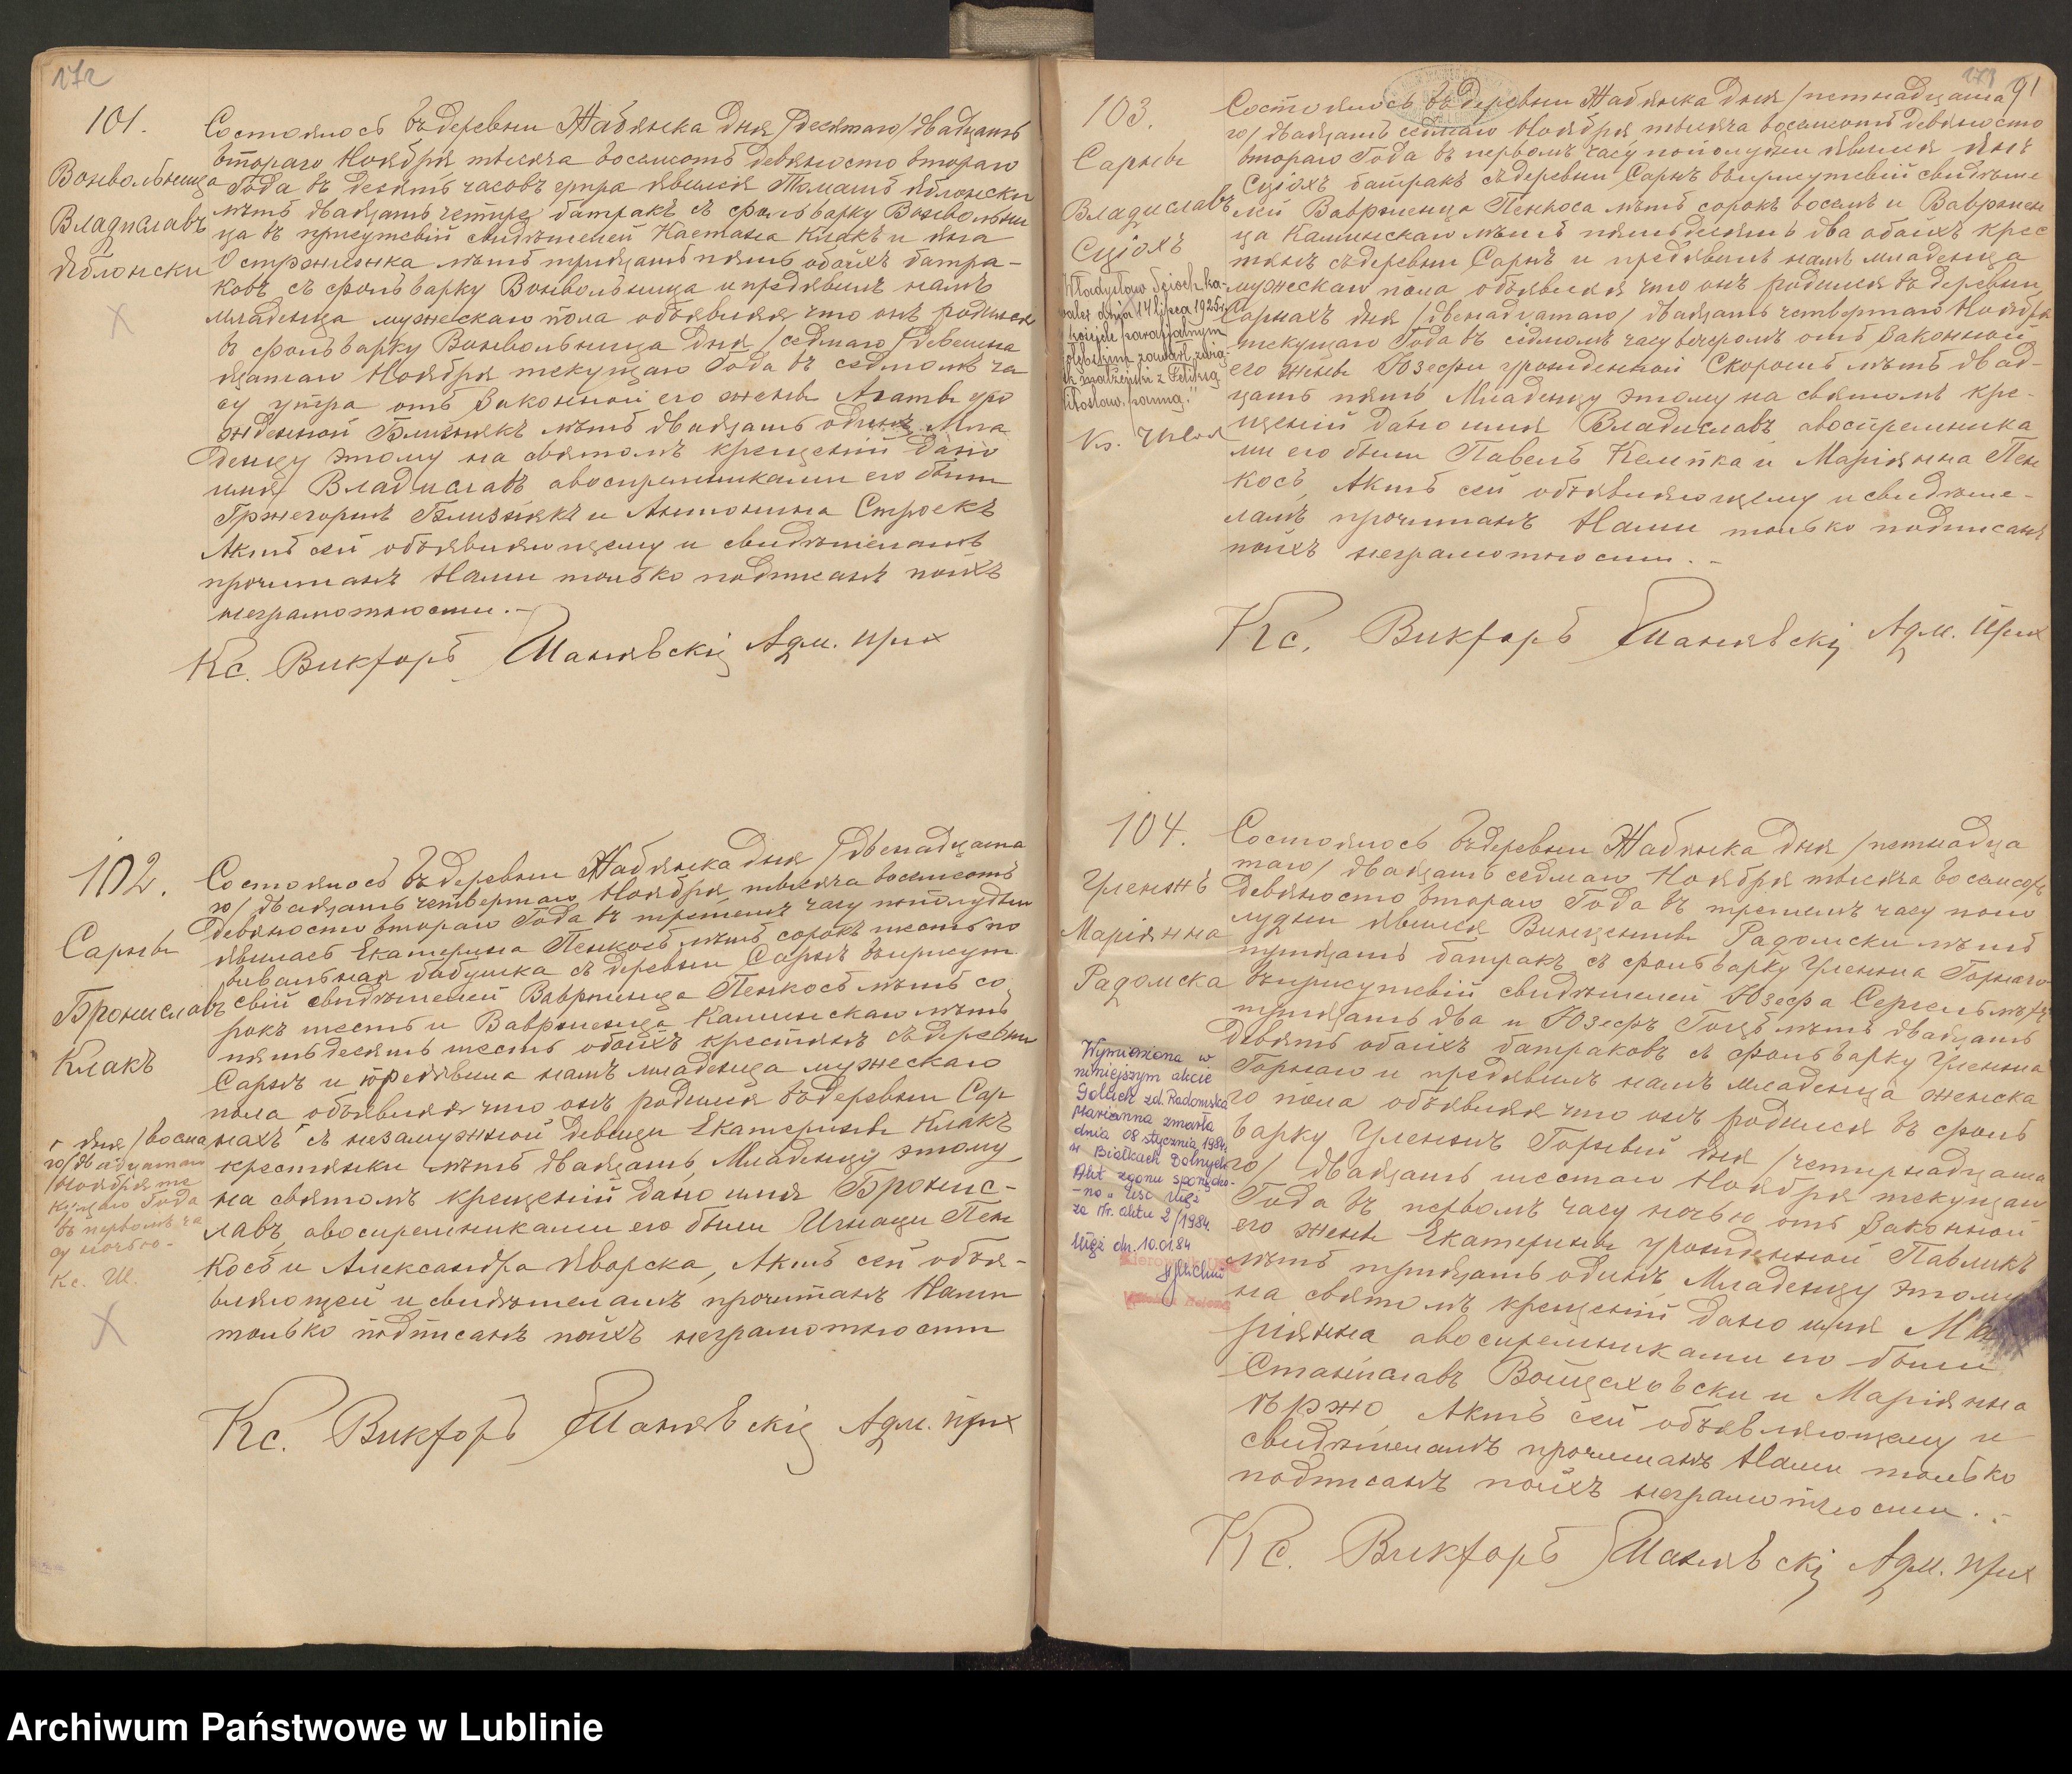 172
101.
Вонвольница
Владиславъ
Яблонски
Состоялось въ деревни Жабянка дня /десятаго/ двадцать
втораго Ноября тысяча восемсотъ девяносто втораго
Года въ десять часовъ утра явился Томашъ Яблонски
лѣтъ двадцать четыре батракъ съ фольварку Вонвольни
ца въ присутствій свидѣтелей Каетана Клакъ и Яна
Остроженка лѣтъ тридцать пять обоихъ батра-
ковъ съ фольварку Вонвольница и предявилъ намъ
младенца мужескаго пола объявляя что онъ родился
въ фольварку Вонвольница дня /седмаго/ деветна
цатаго Ноября текущаго Года въ седмомъ ча
су утра отъ законной его жены Агаты уро
жденной Близнякъ лѣтъ двадцать одинъ, Мла
денцу этому на святомъ крещеній дано
имя Владиславъ авоспрiемниками его были
Гржегоржъ Близнякъ и Антонина Строекъ
Актъ сей объявляющему и свидѣтелямъ
прочитанъ Нами только подписанъ поихъ
неграмотности.-
Кс. Викторъ Шанявскій Адм. прих
102.
Сарны
Брониславъ
Клакъ
Состоялось въ деревни Жабянка дня /двенадцата
го/ двадцать четвертаго Ноября тысяча восемсотъ
девяносто втораго Года въ третемъ часу пополудни
явилась Екатерина Пенкось лѣтъ сорокъ шесть по
вивальная бабушка съ деревни Сарнъ въ присут
свій свидѣтелей Вавржинца Пенкось лѣтъ со
рокъ шесть и Вавржинца Каминскаго лѣтъ
пятьдесять шесть обоихъ крестянъ съ деревни
Сарнъ и предявила намъ младенца мужескаго
пола объявляя что онъ родился въ деревни Сар
нахъ съ незамужной девицы Екатерины Клакъ
крестянки лѣтъ двадцать, Младенцу этому
на святомъ крещеній дано имя Бронис-
лавъ, авоспремниками его были Игнаци Пен
кось и Александра Яворска, Актъ сей объя-
вляющей и свидѣтелямъ прочитанъ Нами
только подписанъ поихъ неграмотности
дня /восма
го/ двадцатаго
Ноября те
кущаго Года
въ первомъ ча
су ночью-
Кс. Ш.
Кс. Викторъ Шанявскій Адм. прих
173 91
103.
Сарны
Владиславъ
Сціохъ
WładysławŚcioch ka-
waler dnia 14 lipca 1925 r
w kościele parafjalnym
gołębskim zawarł zwią-
zek małżeński z Feliksą
Miłosław, panną."
Состоялось въ деревни Жабянка дня /петнадцата
го/ двадцать седмаго Ноября тысяча восемсотъ девяносто
втораго Года въ первомъ часу пополудни явился Янъ
Сціохъ батракъ съ деревни Сарнъ въ присутствій свидѣте
лей Вавржинца Пенкоса лѣтъ сорокъ восемь и Вавржин
ца Каминскаго лѣтъ пятьдесять два обоихъ крес
тянъ съ деревни Сарнъ и предявилъ намъ младенца
мужескаго пола объявляя что онъ родился въ деревни
Сарнахъ дня /двенадцатаго/ двадцать четвертаго Ноября
текущаго Года въ седмомъ часу вечеромъ отъ законной
его жены Юзефы урожденной Скоросъ лѣтъ двад-
цать пять Младенцу этому на святомъ кре-
щеній дано имя Владиславъ авоспремника
ми его были Павелъ Кемпка и Маріянна Пен
кось, Актъ сей объявляющему и свидѣте-
лямъ прочитанъ Нами только подписанъ
поихъ неграмотности.-
Кс. Викторъ Шанявскій Адм. прих
104.
Уленжъ
Маріянна
Радомска
Wymieniona w
niniejszym akcie
Golach zd. Radomska
Marianna zmarła
dnia 08 stycznia 1984
w Białkach Dolnych
Akt zgonu sporządzo-
-no w USC Ułęż
za Nr. aktu 2/1984
Ułęż dn. 10.01.84
Состоялось въ деревни Жабянка дня /петнадца
таго/ двадцать седмаго Ноября тысяча восемсотъ
девяносто втораго Года въ третемъ часу попо
лудни явился Винценты Радомски лѣтъ
тридцать батракъ съ фольварку Уленжа Горнаго
въ присутствій свидѣтелей Юзефа Сергель лѣтъ
тридцать два и Юзефъ Гоцъ лѣтъ двадцать
девять обоихъ батраковъ съ фольварку Уленжа
Горнаго и предявилъ намъ младенца женска
го пола объявляя что онъ родился въ фоль
варку Уленжъ Горный дня /четырнадцата
го/ двадцать шестаго Ноября текущаго
Года въ первомъ часу ночью отъ законной
его жены Екатерины урожденной Павликъ
лѣтъ тридцать одинъ, Младенцу этому
на святомъ крещеній дано имя Ма
ріянна авоспремниками его были
Станиславъ Войцеховски и Маріянна
Актъ сей объявляющему и
свидѣтелямъ прочитанъ Нами только
подписанъ поихъ неграмотности.-
Кс. Викторъ Шанявскій Адм. прих
Archiwum Państwowe w Lublinie